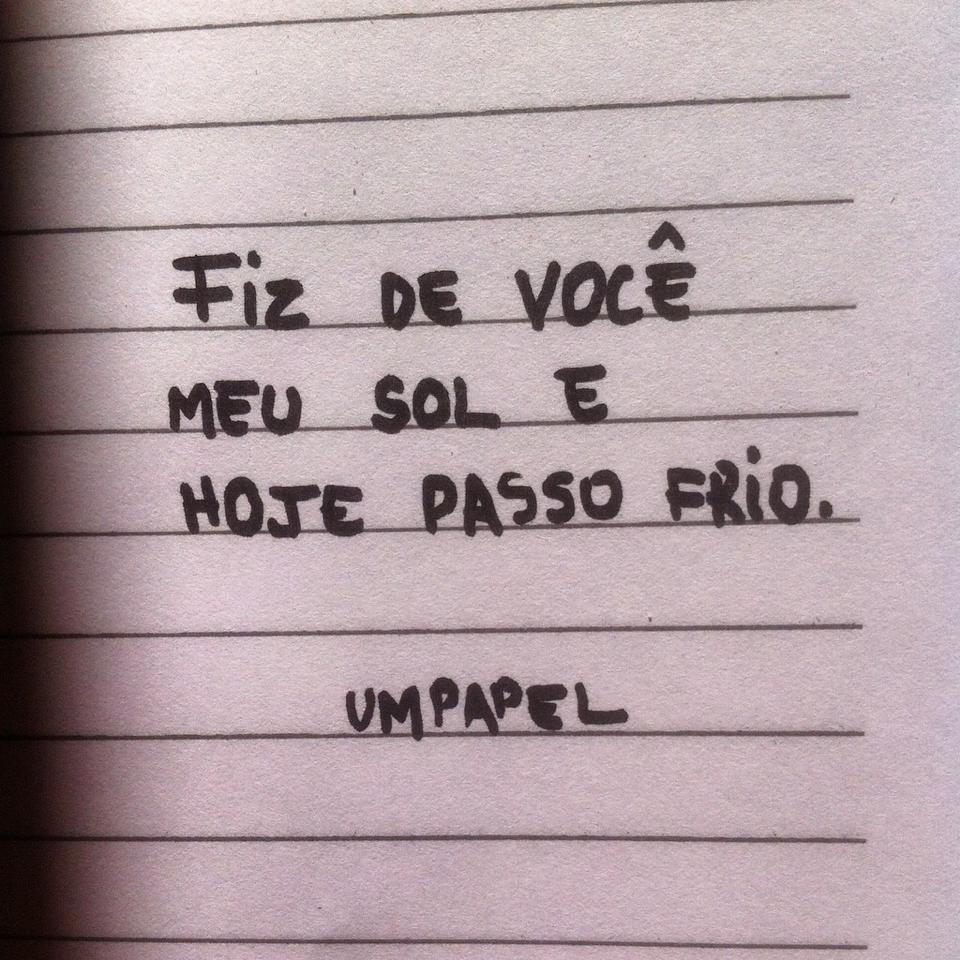 Fiz DE VOCÊ
MEU SOL E
HOJE PASSO FRiO.
UMPAPEL